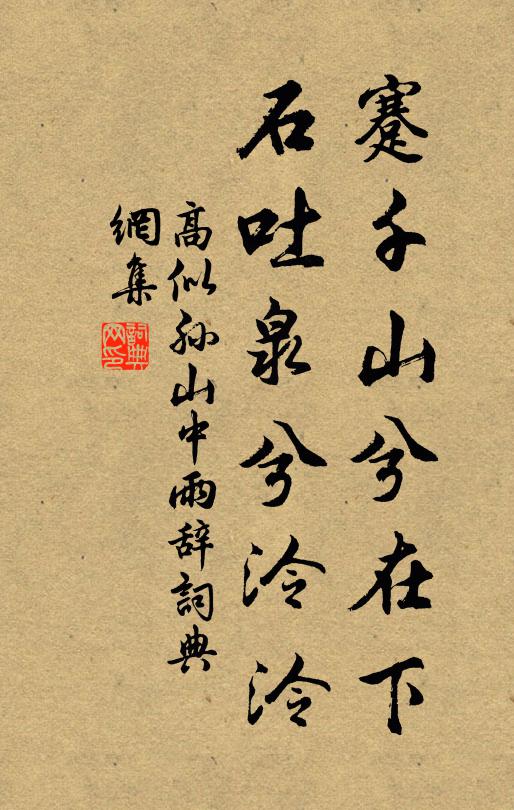 蹇千山兮在下
石吐泉兮泠泠
高似孙山中雨辞詞典
網集
詞典网印